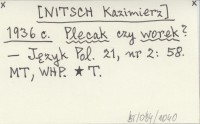 [NITSCH Kazimierz]
1936 c. Plecak czy worek?
— Język Pol. 21, nr 2: 58.
MT, WHP. ★ T.